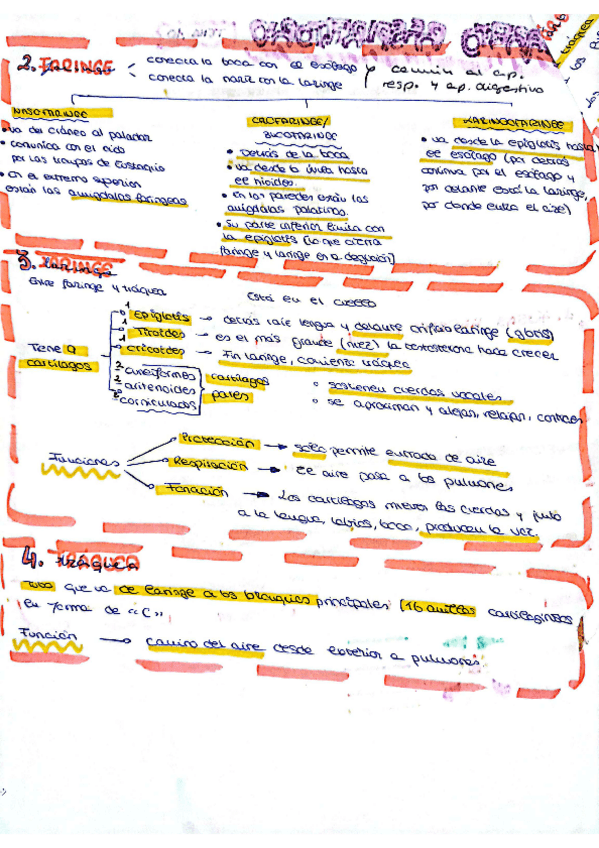 2. FARINGE
conecta la boca con el esófago
conecta la nariz con la laringe
común al ap.
resp. y ap. digestivo
NASOFARINGE
• va del cráneo al paladar
• comunica con el oído
por las trompas de Eustaquio
• en el extremo superior
están las amígdalas faríngeas
OROFARINGE/
BUCOFARINGE
• Detrás de la boca
• va desde la úvula hasta
el hioides.
• en las paredes están las
amígdalas palatinas.
• Su parte inferior limita con
la epiglotis (lo que cierra
faringe y laringe en a deglución)
LARINGOFARINGE
• va desde la epiglotis hasta
el esófago (por detrás
continua por el esófago y
por delante está la laringe,
por donde entra el aire)
3. Laringe
Entre faringe y tráquea
Está en el cuello
Tiene 9
cartílagos
1 Epiglotis → detrás raíz lengua y delante orificio laringe (glotis)
1 Tiroides → es el más grande (nuez) la testosterona hace crecer
1 Cricoides → Fin laringe, comienza tráquea
2 cuneiformes
2 aritenoides
2 corniculados
cartílagos
pares
○ sostienen cuerdas vocales
○ se aproximan y alejan, relajan, contraen
Funciones
Protección → solo permite entrada de aire
Respiración → El aire pasa a los pulmones
Fonación → Los cartílagos mueven las cuerdas y junto
a la lengua, labios, boca, producen la voz.
4. Tráquea
Tubo que va de laringe a los bronquios principales (16 anillos cartilaginosos
en forma de "C")
Función → camino del aire desde exterior a pulmones